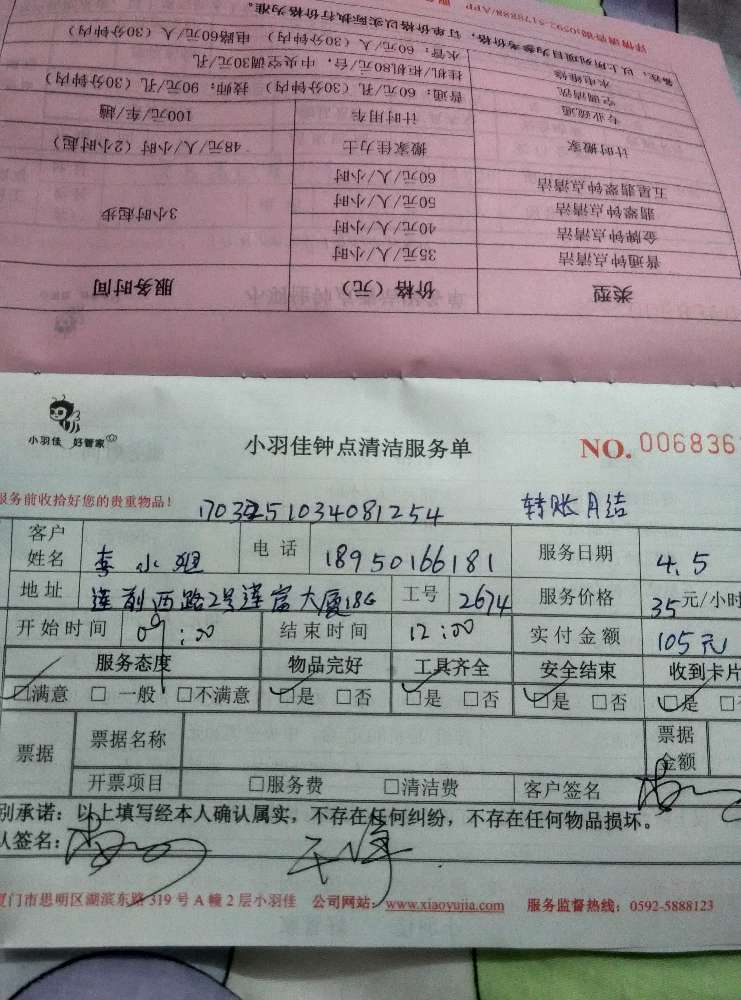 类型 价格（元） 服务时间
普通钟点清洁 35元/人/小时 3小时起步
金牌钟点清洁 40元/人/小时
翡翠钟点清洁 50元/人/小时
五星翡翠钟点清洁 60元/人/小时
计时搬家 搬家佳力士 48元/人/小时（2小时起）
计时用车 100元/车/趟
专业疏通 普通：60元/孔（30分钟内） 技师：90元/孔（30分钟内）
空调清洗 挂机/柜机80元/台，中央空调30元/孔
水电维修 水管：60元/人（30分钟内） 电路60元/人（30分钟内）
备注：以上所列项目为参考价格，订单价格以实际执行价格为准。
详情请咨询0592-5178888/APP
小羽佳 好管家
小羽佳钟点清洁服务单
NO. 006836
服务前收拾好您的贵重物品！
转账月结
客户姓名 李小姐 电话 18950166181 服务日期 4.5
地址 莲前西路2号莲富大厦18G 工号 2674 服务价格 35元/小时
开始时间 09:00 结束时间 12:00 实付金额 105元
服务态度 物品完好 工具齐全 安全结束 收到卡片
□满意 □一般 □不满意 □是 □否 □是 □否 □是 □否 □是
票据 票据名称 票据金额
开票项目 □服务费 □清洁费 客户签名
别承诺：以上填写经本人确认属实，不存在任何纠纷，不存在任何物品损坏。
人签名：
厦门市思明区湖滨东路319号A幢2层小羽佳 公司网站：www.xiaoyujia.com 服务监督热线：0592-5888123